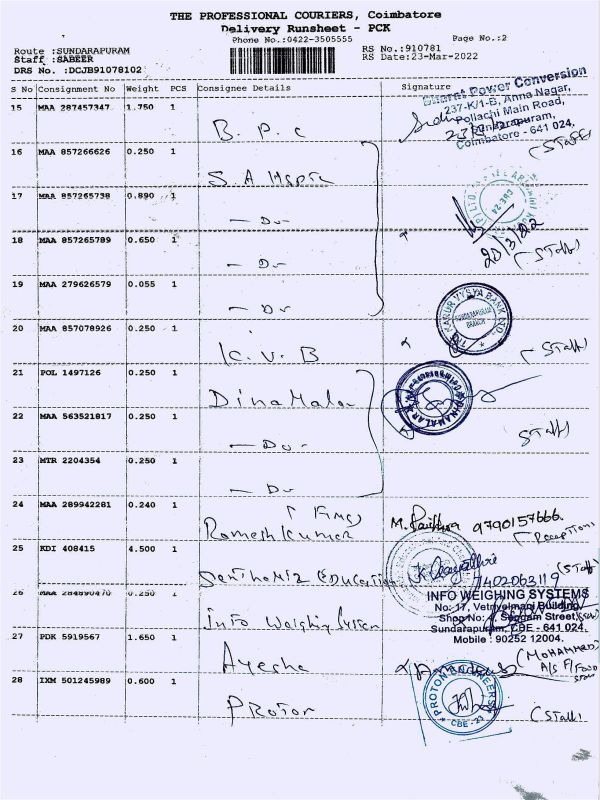 THE PROFESSIONAL COURIERS, Coimbatore
Delivery Runsheet - PCK
Phone No.:0422-3505555
Page No.:2
Route :SUNDARAPURAM
Staff :SABEER
DRS No. :DCJB91078102
RS No.:910781
RS Date:23-Mar-2022
S No Consignment No Weight PCS Consignee Details Signature
15 MAA 287457347 1.750 1 B. P. C
Bharat Power Conversion
237-K/1-B, Anna Nagar,
Pollachi Main Road,
Sundarapuram,
Coimbatore - 641 024.
(Staff)
16 MAA 857266626 0.250 1 S. A
17 MAA 857265738 0.890 1 — Do —
CBE 24
20/3/22
18 MAA 857265789 0.650 1 — Do —
(Staff)
19 MAA 279626579 0.055 1 — Do —
KARUR VYSYA BANK
SUNDARAPURAM
BRANCH
20 MAA 857078926 0.250 1 K. V. B
(Staff)
21 POL 1497126 0.250 1 Dinamalar
DINAMALAR
22 MAA 563521817 0.250 1 — Do —
Staff)
23 MTR 2204354 0.250 1 — Do —
24 MAA 289942281 0.240 1 Ramesh Kumar
M. 9790157666.
25 KDI 408415 4.500 1 Education
(Staff)
7402063119
26 MAA 284890470 0.250 1 Info Weighing System
INFO WEIGHING SYSTEMS
No: 17, Vetrivelmani Building,
Shop No: 2, Street,
Sundarapuram, CBE - 641 024.
Mobile : 90252 12004.
27 PDK 5919567 1.650 1 Ayesha
(MOHAMMED
28 IXM 501245989 0.600 1 PROTON
PROTON ENGINEERS
CBE - 23
(Staff)